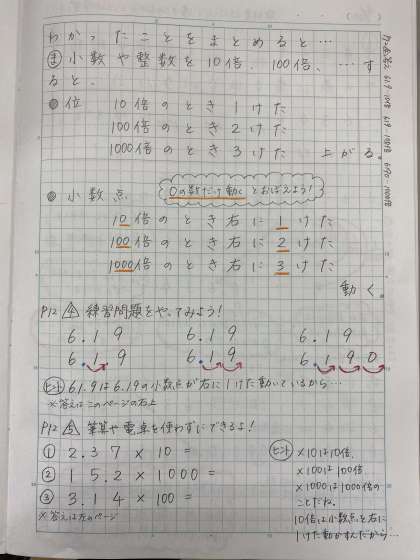 わかったことをまとめると…
ま 小数や整数を10倍、100倍、…す
ると、
● 位 10倍のとき1けた
100倍のとき2けた
1000倍のとき3けた 上がる。
0の数だけ動くとおぼえよう!
● 小数点
10倍のとき右に1けた
100倍のとき右に2けた
1000倍のとき右に3けた
動く。
P12 4 練習問題をやってみよう!
6.19 6.19 6.19
6.1.9 6.19. 6.190
ヒント 61.9は6.19の小数点が右に1けた動いているから…
※答えはこのページの右上
P12 5 筆算や電卓を使わずにできるよ!
① 2.37×10=
② 15.2×1000=
③ 3.14×100=
※答えは左のページ
ヒント ×10は10倍、
×100は100倍、
×1000は1000倍の
ことだね。
10倍は小数点を右に
1けた動かすんだから…